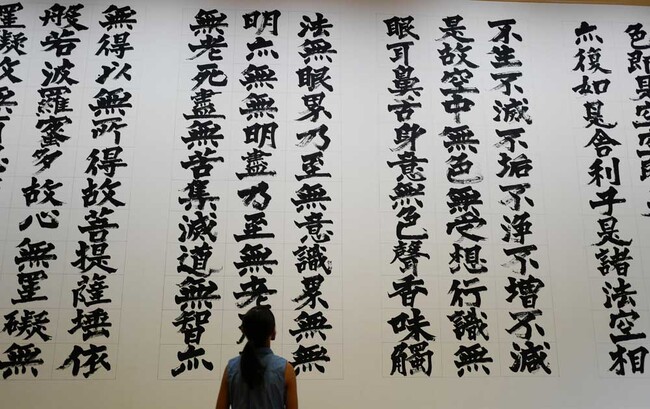 色即是空空即是
亦復如是舍利子是諸法空相
不生不滅不垢不淨不增不減
是故空中無色無受想行識無
眼耳鼻舌身意無色聲香味觸
法無眼界乃至無意識界無無
明亦無無明盡乃至無老
無老死盡無苦集滅道無智亦
無得以無所得故菩提薩埵依
般若波羅蜜多故心無罣礙無
罣礙故